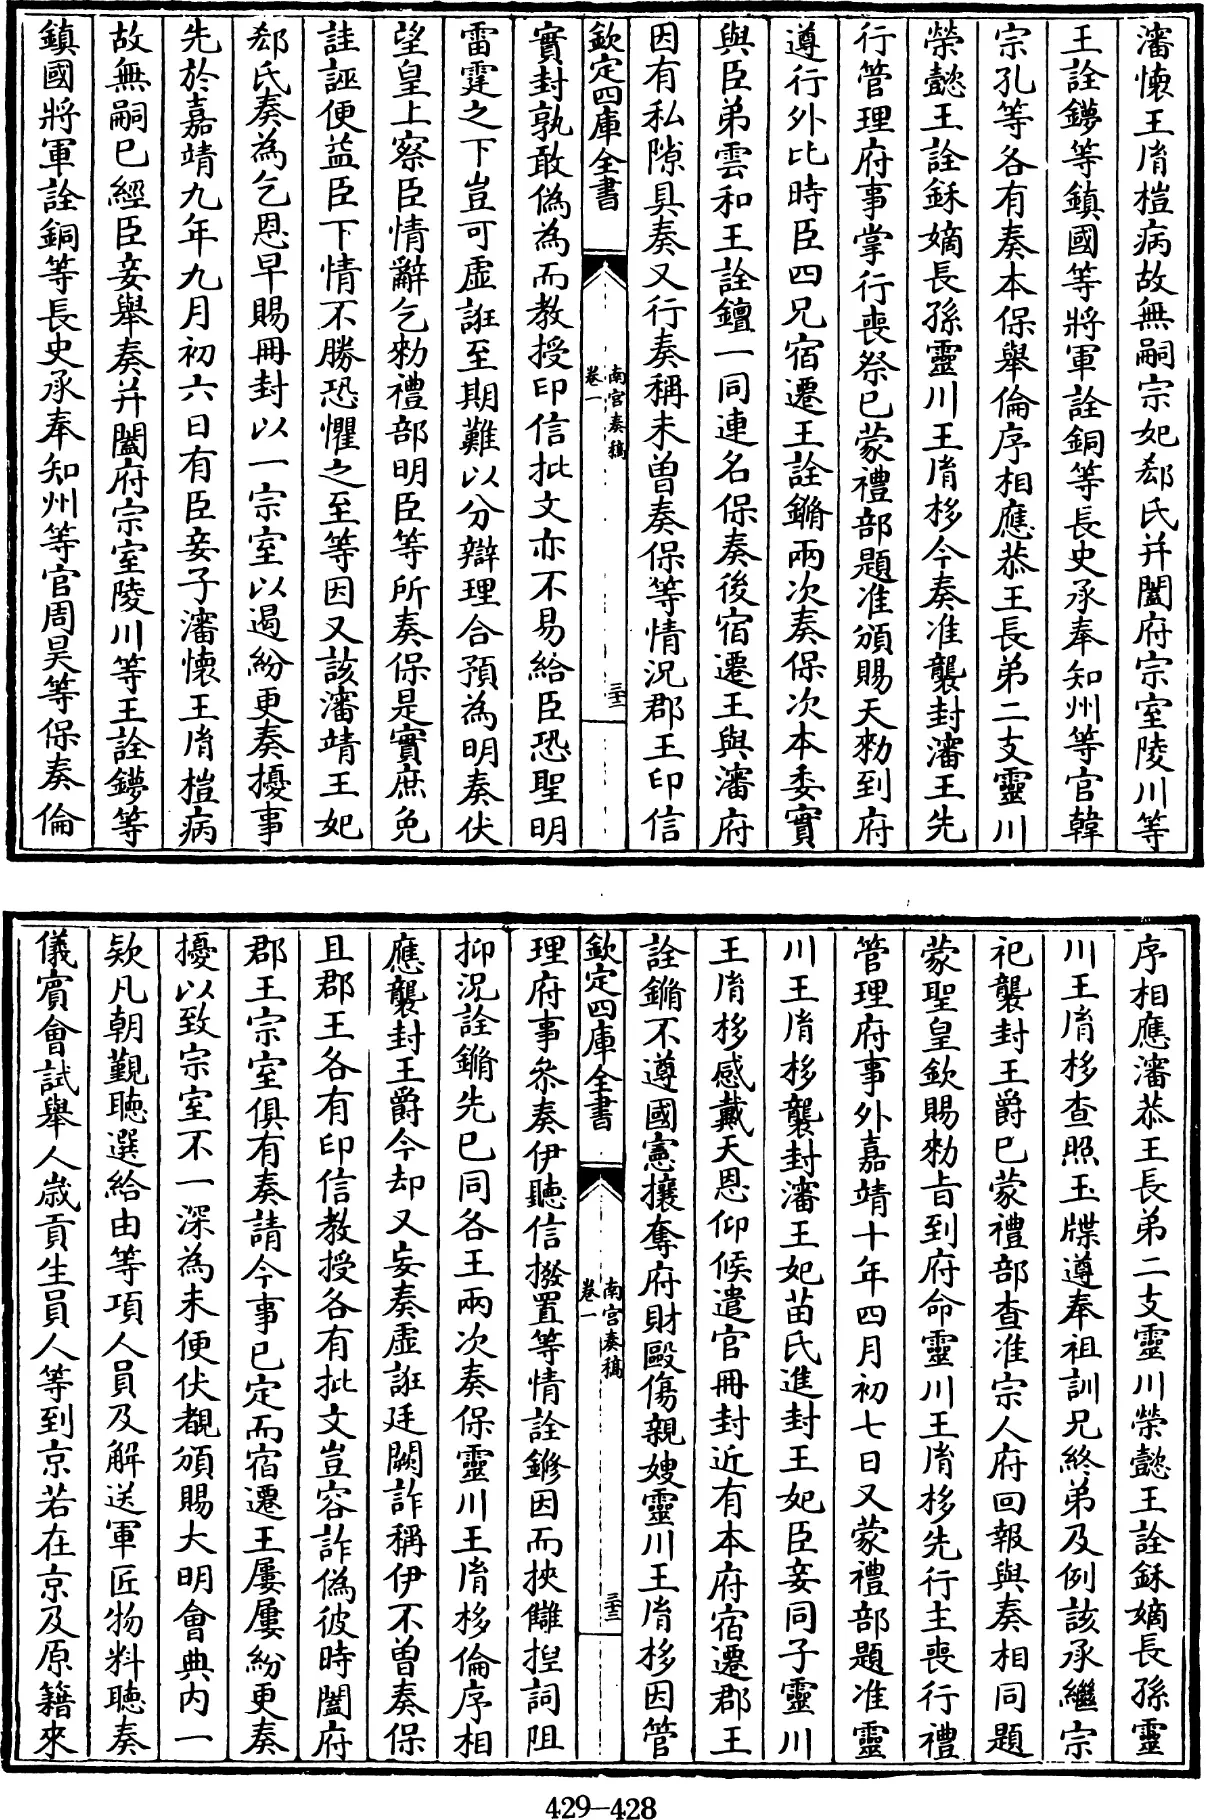 瀋懐王㣧榿病故無嗣宗妃郄氏并闔府宗室陵川等
王詮䥰等鎮國等將軍詮銅等長史承奉知州等官韓
宗孔等各有奏本保舉倫序相應恭王長弟二支靈川
榮懿王詮鉌嫡長孫靈川王㣧栘今奏准襲封瀋王先
行管理府事掌行喪祭已蒙禮部題准頒賜天勑到府
遵行外比時臣四兄宿遷王詮鏅兩次奏保次本委實
與臣弟雲和王詮鑹一同連名保奏後宿遷王與瀋府
因有私隙具奏又行奏稱未曽奏保等情況郡王印信
欽定四庫全書
南宫奏稿
卷一
三十二
實封孰敢偽為而教授印信批文亦不易給臣恐聖明
雷霆之下豈可虛誑至期難以分辯理合預為明奏伏
望皇上察臣情辭乞勑禮部明臣等所奏保是實庶免
詿誣便益臣下情不勝恐懼之至等因又該瀋靖王妃
郄氏奏為乞恩早賜冊封以一宗室以遏紛更奏擾事
先於嘉靖九年九月初六日有臣妾子瀋懷王㣧榿病
故無嗣已經臣妾舉奏并闔府宗室陵川等王詮䥰等
鎮國將軍詮銅等長史承奉知州等官周昊等保奏倫
序相應瀋恭王長弟二支靈川榮懿王詮鉌嫡長孫靈
川王㣧栘查照玉牒遵奉祖訓兄終弟及例該承繼宗
祀襲封王爵已蒙禮部查准宗人府回報與奏相同題
蒙聖皇欽賜勑㫖到府命靈川王㣧栘先行主喪行禮
管理府事外嘉靖十年四月初七日又蒙禮部題准靈
川王㣧栘襲封瀋王妃苗氏進封王妃臣妾同子靈川
王㣧栘感戴天恩仰候遣官冊封近有本府宿遷郡王
詮鏅不遵國憲攘奪府財毆傷親嫂靈川王㣧栘因管
欽定四庫全書
南宫奏稿
卷一
三十三
理府事叅奏伊聽信撥置等情詮鏅因而挾讎揑詞阻
抑況詮鏅先已同各王兩次奏保靈川王㣧栘倫序相
應襲封王爵今却又妄奏虛誑廷闕詐稱伊不曽奏保
且郡王各有印信教授各有批文豈容詐偽彼時闔府
郡王宗室俱有奏請今事已定而宿遷王屢屢紛更奏
擾以致宗室不一深為未便伏覩頒賜大明會典内一
欵凡朝覲聽選給由等項人員及解送軍匠物料聽奏
儀賓會試舉人歳貢生員人等到京若在京及原籍來
429—428